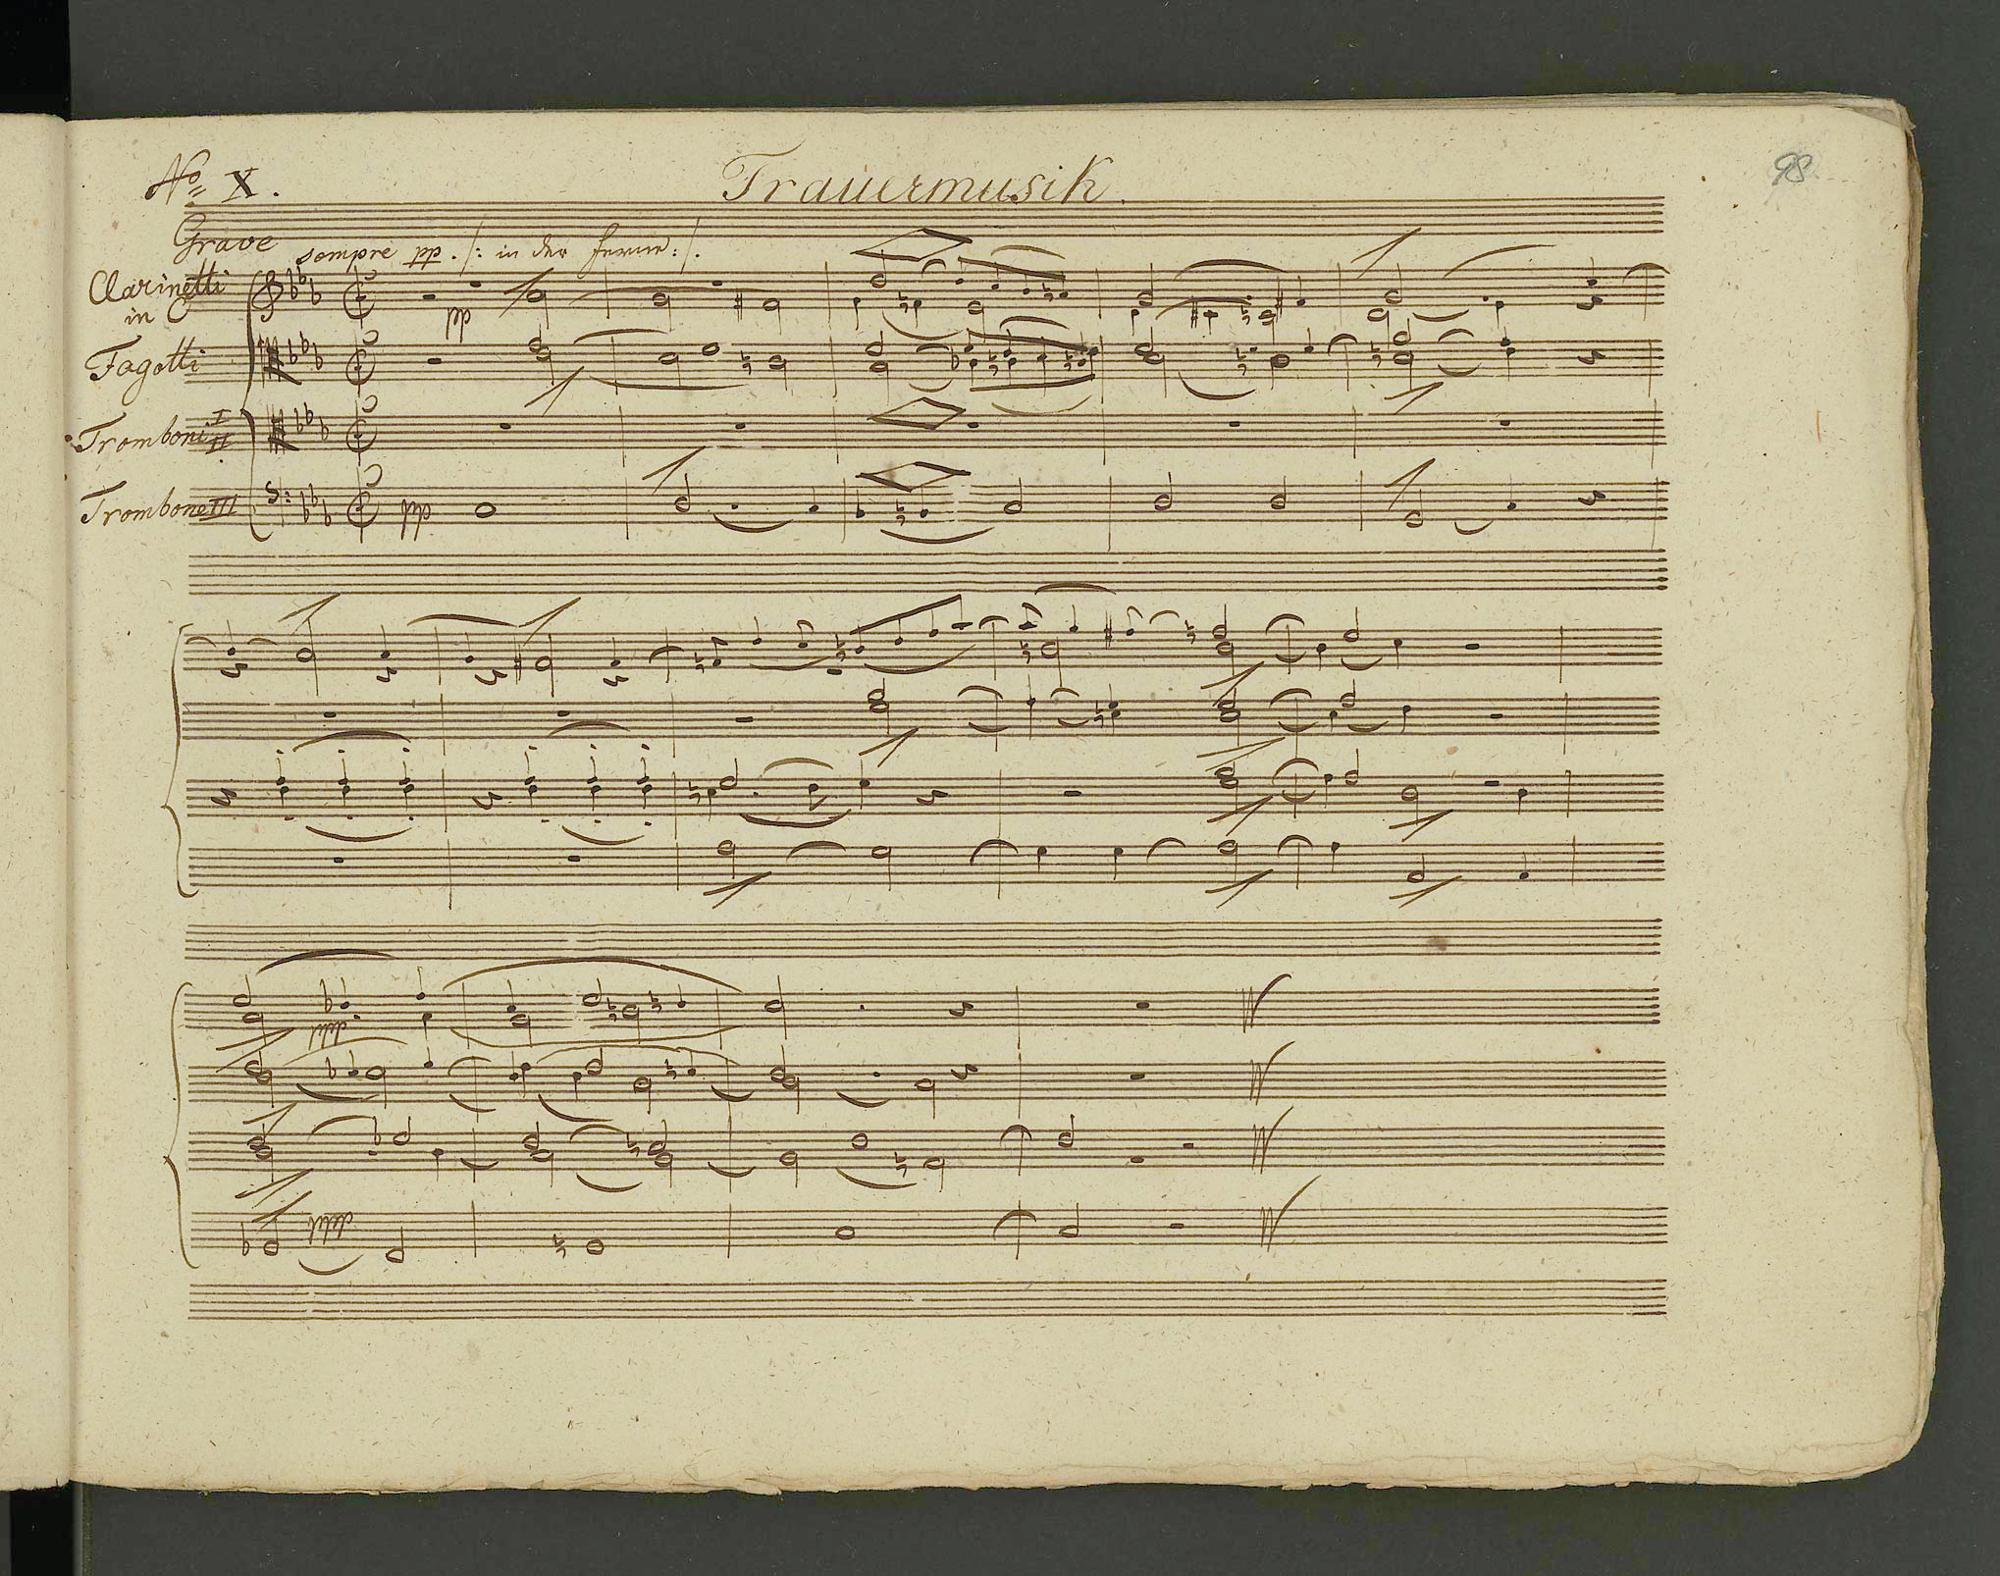 No X.
Trauermusik.
98
Grave
sempre pp. /: in der Ferne :/.
Clarinetti
in C
pp
Fagotti
Tromboni I
II
Trombone III
pp